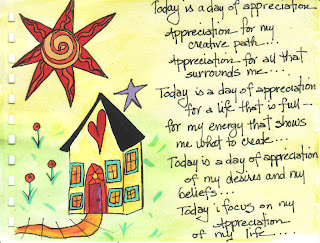 Today is a day of appreciation
Appreciation for my
creative path....
Appreciation for all that
surrounds me....
Today is a day of appreciation
for a life that is full -
for my energy that shows
me what to create...
Today is a day of appreciation
of my desires and my
beliefs...
Today i focus on my
Appreciation
of my life....